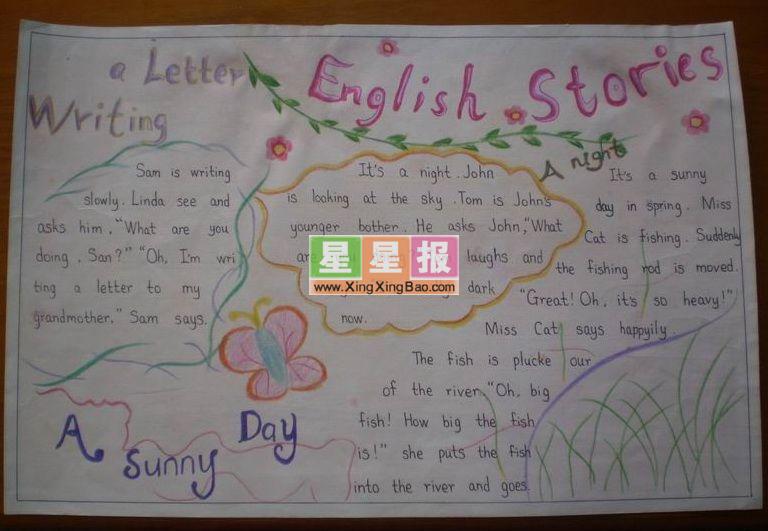 a Letter
Writing
English Stories
Sam is writing
slowly. Linda see and
asks him, "What are you
doing, San?" "Oh, I'm wri
ting a letter to my
grandmother." Sam says.
A night
It's a night. John
is looking at the sky. Tom is John's
younger bother. He asks John, "What
are laughs and
dark
now.
星星报
www.XingXingBao.com
It's a sunny
day in spring. Miss
Cat is fishing. Suddenly
the fishing rod is moved.
"Great! Oh, it's so heavy!"
Miss Cat says happyily.
The fish is plucke our
of the river. "Oh, big
fish! How big the fish
is!" she puts the fish
into the river and goes.
A Sunny Day